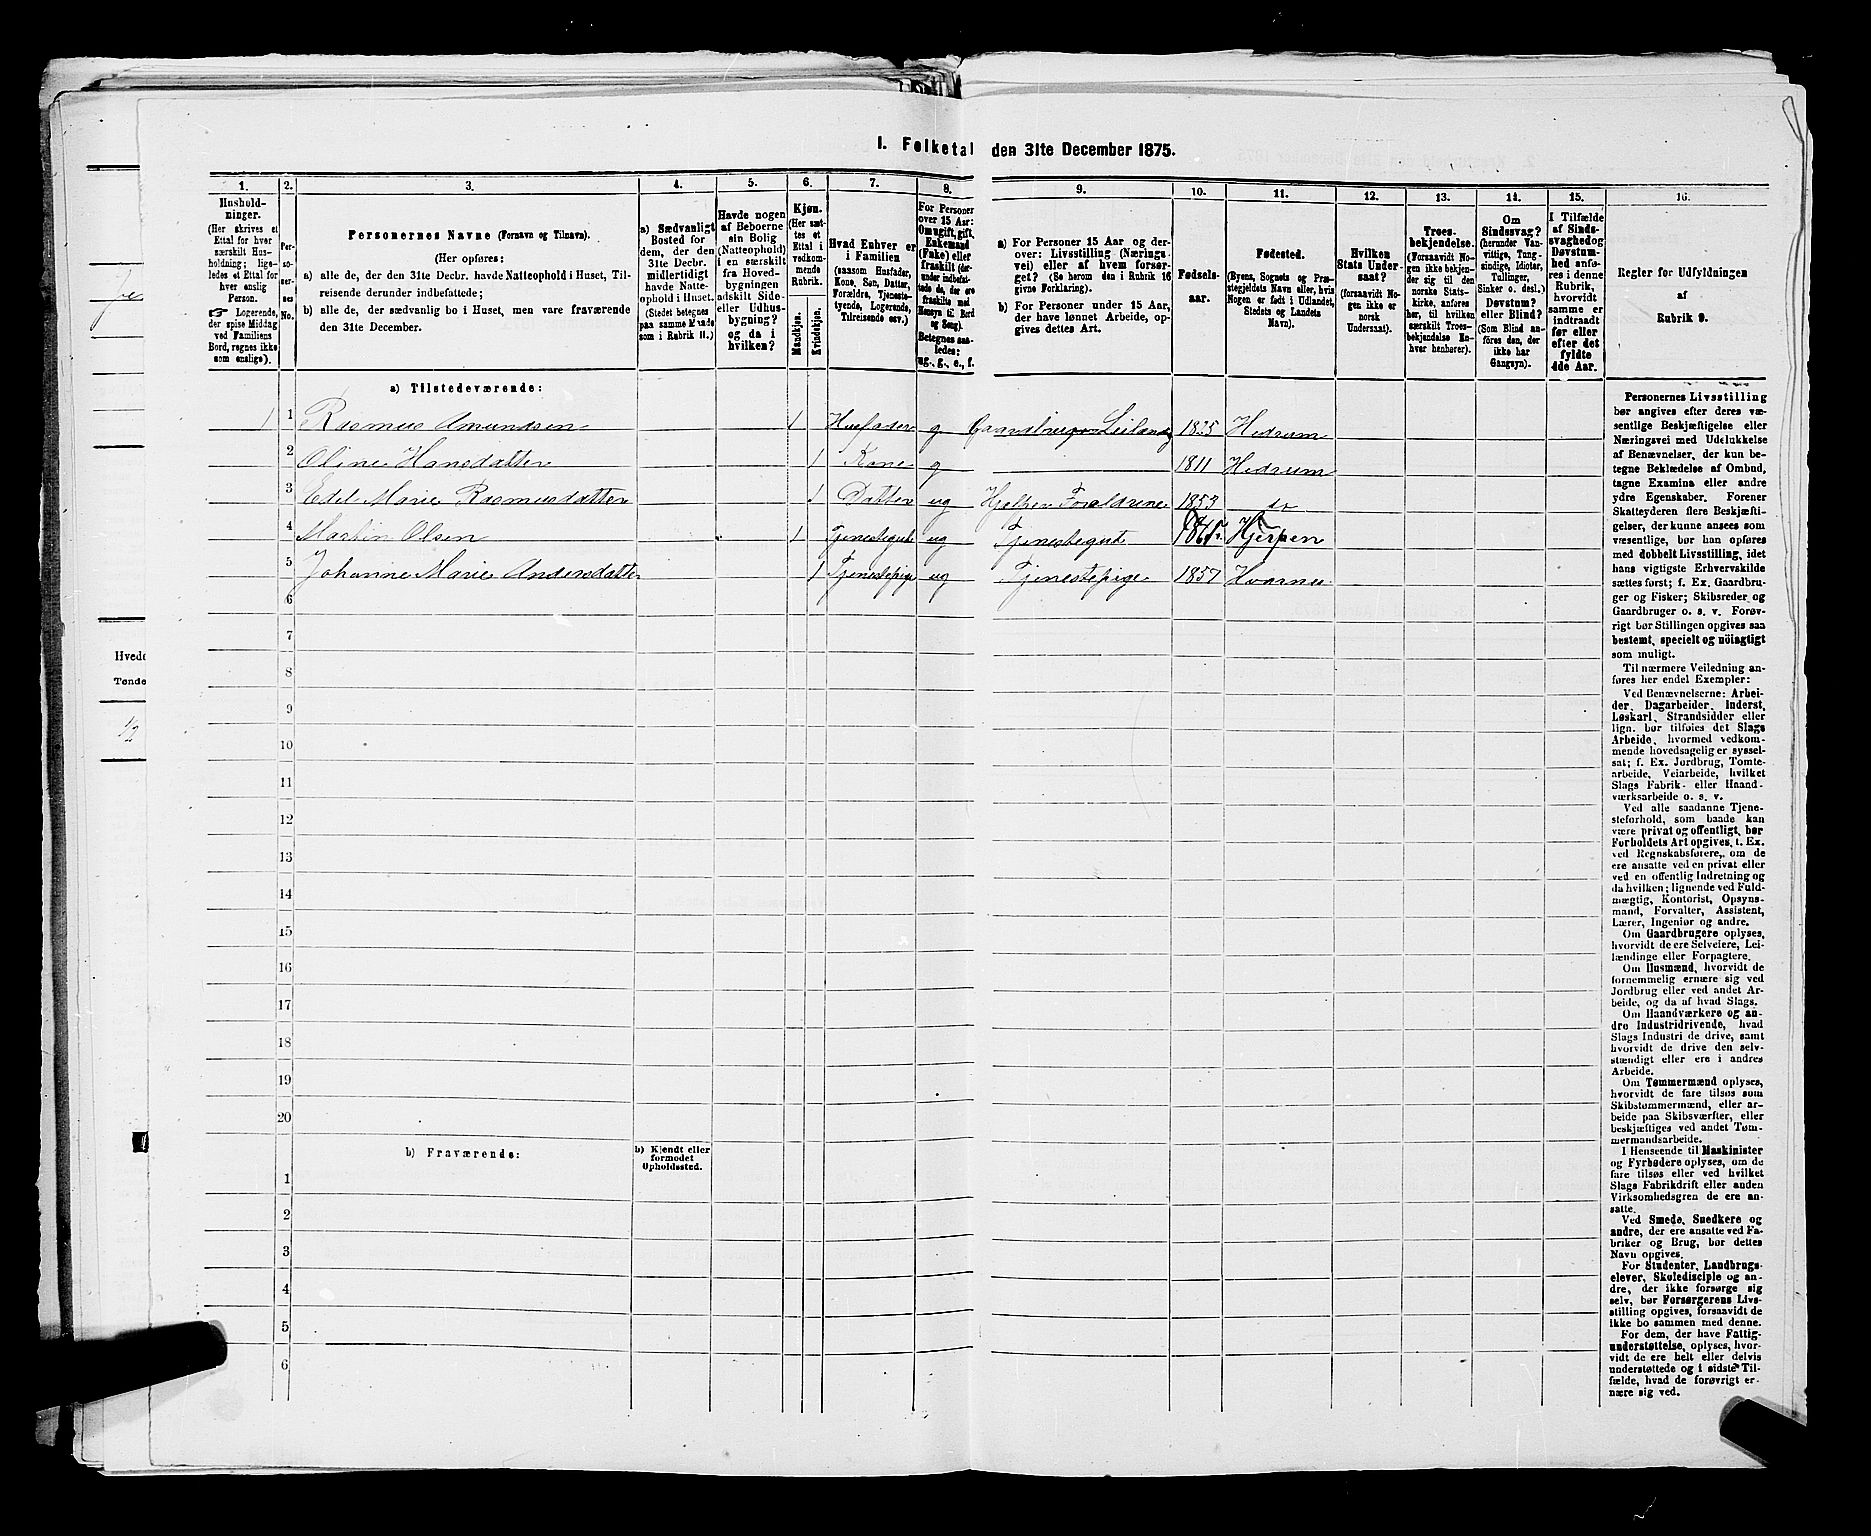 I. Folketal den 31te December 1875.
1. 2. 3. 4. 5. 6. 7. 8. 9. 10. 11. 12. 13. 14. 15. 16.
Hushold-
ninger.
(Her skrives et
Ettal for hver
særskilt Hus-
holdning; lige-
ledes et Ettal for
hver enslig
Person.
☞ Logerende,
der spise Middag
ved Familiens
Bord, regnes ikke
som enslige).
Per-
so-
ner-
nes
No.
Personernes Navne (Fornavn og Tilnavn).
(Her opføres:
a) alle de, der den 31te Decbr. havde Natteophold i Huset, Til-
reisende derunder indbefattede;
b) alle de, der sædvanlig bo i Huset, men vare fraværende
den 31te December.
a) Sædvanligt
Bosted for
dem, der den
31te Decbr.
midlertidigt
havde Natte-
ophold i Huset.
(Stedet betegnes
paa samme Maade
som i Rubrik 11.)
Havde nogen
af Beboerne
sin Bolig
(Natteophold)
i en særskilt
fra Hoved-
bygningen
adskilt Side-
eller Udhus-
bygning?
og da i
hvilken?
Kjøn.
(Her sæt-
tes et
Ettal i
vedkom-
mende
Rubrik.
Mandkjøn.
Kvindekjøn.
Hvad Enhver er
i Familien
(saasom Husfader,
Kone, Søn, Datter,
Forældre, Tjeneste-
tyende, Logerende,
Tilreisende osv.)
For Personer
over 15 Aar:
Om ugift, gift,
Enkemand
(Enke) eller
fraskilt (der-
under indbefat-
tede de, der ere
fraskilte med
Hensyn til Bord
og Seng).
Betegnes saa-
ledes:
ug., g., e., f.
a) For Personer 15 Aar og der-
over: Livsstilling (Nærings-
vei) eller af hvem forsør-
get? (Se herom den i Rubrik 16
givne Forklaring).
b) For Personer under 15 Aar,
der have lønnet Arbeide, op-
gives dettes Art.
Fødsels-
aar.
Fødested.
(Byens, Sognets og Præ-
stegjeldets Navn eller, hvis
Nogen er født i Udlandet,
Stedets og Landets
Navn).
Hvilken
Stats Under-
saat?
(forsaavidt No-
gen ikke er
norsk
Undersaat).
Troes-
bekjendelse.
(Forsaavidt No-
gen ikke bekjen-
der sig til den
norske Stats-
kirke, anføres
her, til hvilken
særskilt Troes-
bekjendelse En-
hver henhører).
Om
Sindssvag?
(herunder Van-
vittige, Tung-
sindige, Idioter,
Tullinger,
Sinker o. desl.)
Døvstum?
eller Blind?
(Som Blind an-
føres den, der
ikke har
Gangsyn).
I Tilfælde
af Sinds-
svaghed og
Døvstum-
hed anfø-
res i denne
Rubrik,
hvorvidt
samme er
indtraadt
før eller
efter det
fyldte
4de Aar.
Regler for Udfyldningen
af
Rubrik 9.
a) Tilstedeværende:
1 1 Rasmus Amundsen 1 Husfader g Gaardbruger Leilænding 1825 Hedrum
2 Oline Hansdatter 1 Kone g 1811 Hedrum
3 Edel Marie Rasmusdatter 1 Datter ug Hjelper Forældrene 1853 do
4 Martin Olsen 1 Tjenestegut ug Tjenestegut Hjerpen
5 Johanne Marie Andersdatter 1 Tjenestepige ug Tjenestepige 1857 Hvarnes
6
7
8
9
10
11
12
13
14
15
16
17
18
19
20
b) Fraværende:
b) Kjendt eller
formodet
Opholdssted.
1
2
3
4
5
6
Personernes Livsstilling
bør angives efter deres væ-
sentlige Beskjæftigelse eller
Næringsvei med Udelukkelse
af Benævnelser, der kun be-
tegne Beklædelse af Ombud,
tagne Examina eller andre
ydre Egenskaber. Forener
Skatteyderen flere Beskjæfti-
gelser, der kunne ansees som
væsentlige, bør han opføres
med dobbelt Livsstilling, idet
hans vigtigste Erhvervskilde
sættes først; f. Ex. Gaardbru-
ger og Fisker; Skibsreder og
Gaardbruger o. s. v. Forøv-
rigt bør Stillingen opgives saa
bestemt, specielt og nöiagtigt
som muligt.
Til nærmere Veiledning an-
føres her endel Exempler:
Ved Benævnelserne: Arbei-
der, Dagarbeider, Inderst,
Løskarl, Strandsidder eller
lign. bør tilføies det Slags
Arbeide, hvormed vedkom-
mende hovedsagelig er syssel-
sat; f. Ex. Jordbrug, Tomte-
arbeide, Veiarbeide, hvilket
Slags Fabrik- eller Haand-
værksarbeide o. s. v.
Ved alle saadanne Tjene-
steforhold, som baade kan
være privat og offentligt, bør
Forholdets Art opgives, t. Ex.
ved Regnskabsførere, om de
ere ansatte ved en privat eller
ved en offentlig Indretning og
da hvilken; lignende ved Fuld-
mægtig, Kontorist, Opsyns-
mand, Forvalter, Assistent,
Lærer, Ingeniør og andre.
Om Gaardbrugere oplyses,
hvorvidt de ere Selveiere, Lei-
lændinge eller Forpagtere.
Om Husmænd, hvorvidt de
fornemmelig ernære sig ved
Jordbrug eller ved andet Ar-
beide, og da af hvad Slags.
Om Haandværkere og an-
dre Industridrivende, hvad
Slags Industri de drive, samt
hvorvidt de drive den selv-
stændigt eller ere i andres
Arbeide.
Om Tømmermænd oplyses,
hvorvidt de fare tilsøs som
Skibstømmermænd, eller ar-
beide paa Skibsværfter, eller
beskjæftiges ved andet Tøm-
mermandsarbeide.
I Henseende til Maskinister
og Fyrbødere oplyses, om de
fare tilsøs eller ved hvilket
Slags Fabrikdrift eller anden
Virksomhedsgren de ere an-
satte.
Ved Smede, Snedkere og
andre, der ere ansatte ved Fa-
briker og Brug, bør dettes
Navn opgives.
For Studenter, Landbrugs-
elever, Skoledisciple og an-
dre, der ikke forsørge sig
selv, bør Forsørgerens Livs-
stilling opgives, forsaavidt de
ikke bo sammen med denne.
For dem, der have Fattig-
understøttelse, oplyses, hvor-
vidt de ere helt eller delvis
understøttede og i sidste Til-
fælde, hvad de forøvrigt er-
nære sig ved.
Hvede
Tønde
1/2